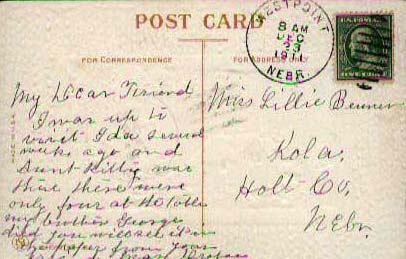 POST CARD
FOR CORRESPONDENCE
FOR ADDRESS ONLY
WEST POINT
8 AM
DEC
23
NEBR.
My Dear Friend
I was up to
visit Ida several
weeks ago and
Aunt Kitty was
there there were
only four at
my brother George
did you will see it in
the paper from your
Miss Lillie Benner
Kola.
Holt Co,
Nebr.